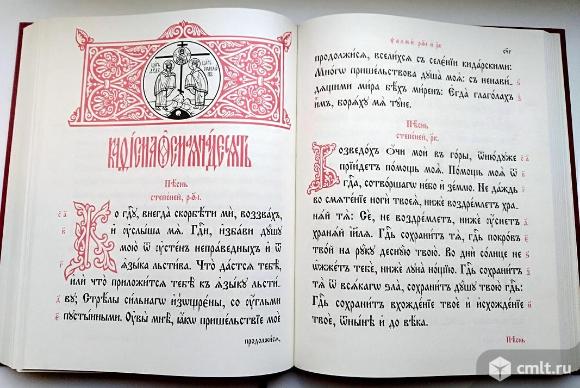 КАѲІСМА ѺСМАЯНАДЕСЯТЬ
Пѣснь
степеней, р҃ѳі.
Ко гдⷭ҇ꙋ, внегда̀ скорбѣ́ти мѝ, воззва́хъ,
и҆ ᲂу҆слы́ша мѧ̀. Гдⷭ҇и, и҆зба́ви дꙋ́шꙋ
мою̀ ѿ ᲂу҆сте́нъ непра́ведныхъ и҆ ѿ
ѧ҆зы́ка льсти́ва. Что̀ да́стсѧ тебѣ̀,
и҆лѝ что̀ приложи́тсѧ тебѣ̀ къ ѧ҆зы́кꙋ льсти́-
вꙋ; Стрѣ́лы си́льнагѡ и҆зѡщрє́ны, со ᲂу҆́гльми
пꙋсты́нными. Оу҆вы̀ мнѣ̀, ꙗ҆́кѡ прише́льствїе моѐ
продолжи́сѧ,
продолжи́сѧ, всели́хсѧ съ селе́нїи кида́рскими.
Мно́гѡ прише́льствова дꙋша̀ моѧ̀: съ ненави́-
дѧщими ми́ра бѣ́хъ ми́ренъ: є҆гда̀ глаго́лахъ
и҆̀мъ, борѧ́хꙋ мѧ̀ тꙋ́не.
Пѣснь
степеней, р҃к.
Возведо́хъ ѻ҆́чи моѝ въ го́ры, ѿню́дꙋже
прїи́детъ по́мощь моѧ̀. По́мощь моѧ̀ ѿ
гдⷭ҇а, сотво́ршагѡ не́бо и҆ зе́млю. Не да́ждь
во смѧте́нїе ногѝ твоеѧ̀, нижѐ воздре́млетъ хра-
нѧ́й тѧ̀. Сѐ, не воздре́млетъ, нижѐ ᲂу҆́снетъ
хранѧ́й і҆и҃лѧ. Гдⷭ҇ь сохрани́тъ тѧ̀, гдⷭ҇ь покро́въ
тво́й на рꙋ́кꙋ деснꙋ́ю твою̀. Во днѝ со́лнце не
ѡ҆жже́тъ тебѐ, нижѐ лꙋна̀ но́щїю. Гдⷭ҇ь сохрани́тъ
тѧ̀ ѿ всѧ́кагѡ ѕла̀, сохрани́тъ дꙋ́шꙋ твою̀ гдⷭ҇ь:
Гдⷭ҇ь сохрани́тъ вхожде́нїе твоѐ и҆ и҆схожде́нїе
твоѐ, ѿны́нѣ и҆ до вѣ́ка.
Пѣснь
cmlt.ru